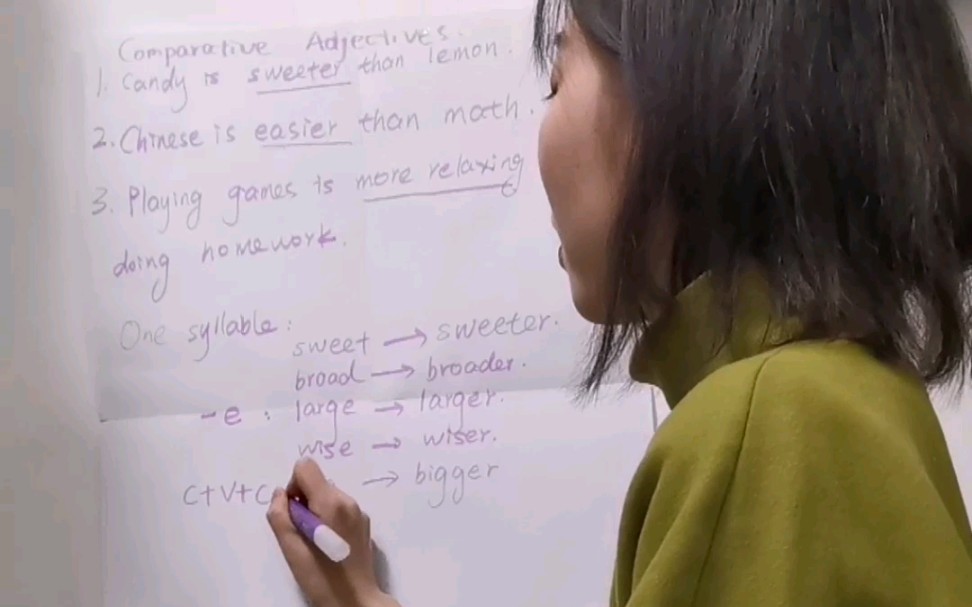 Comparative Adjectives.
1. Candy is sweeter than lemon.
2. Chinese is easier than math.
3. Playing games is more relaxing
doing homework.
One syllable:
sweet → sweeter.
broad → broader.
-e : large → larger.
wise → wiser.
C+V+C → bigger